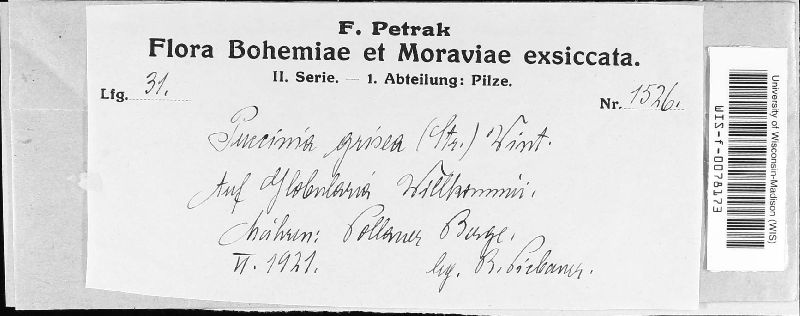 F. Petrak
Flora Bohemiae et Moraviae exsiccata.
II. Serie. — 1. Abteilung: Pilze.
Lfg. 31.
Nr. 1526.
Puccinia grisea (Str.) Wint.
Auf Globularia Willkommii.
Mähren: Pollauer Berge.
VI. 1921. lg. R. Picbauer.
University of Wisconsin-Madison (WIS)
WIS-f-0078173